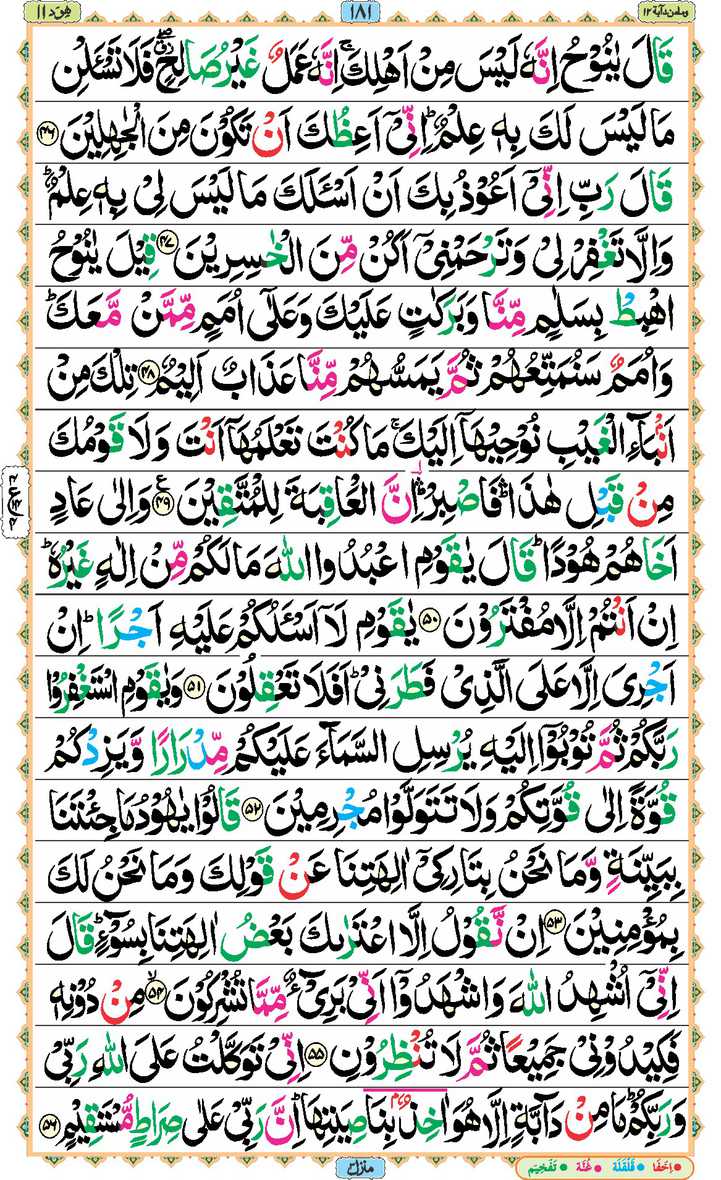 وما من دآبة ۱۲
۱۸۱
ھود ۱۱
قَالَ يٰنُوْحُ اِنَّهٗ لَيْسَ مِنْ اَهْلِكَ ۚ اِنَّهٗ عَمَلٌ غَيْرُ صَالِحٍ ۖ فَلَا تَسْـَٔلْنِ
مَا لَيْسَ لَكَ بِهٖ عِلْمٌ ؕ اِنِّيْۤ اَعِظُكَ اَنْ تَكُوْنَ مِنَ الْجٰهِلِيْنَ ۴۶
قَالَ رَبِّ اِنِّيْۤ اَعُوْذُ بِكَ اَنْ اَسْـَٔلَكَ مَا لَيْسَ لِيْ بِهٖ عِلْمٌ ؕ
وَاِلَّا تَغْفِرْ لِيْ وَتَرْحَمْنِيْۤ اَكُنْ مِّنَ الْخٰسِرِيْنَ ۴۷ قِيْلَ يٰنُوْحُ
اهْبِطْ بِسَلٰمٍ مِّنَّا وَبَرَكٰتٍ عَلَيْكَ وَعَلٰۤى اُمَمٍ مِّمَّنْ مَّعَكَ ؕ
وَاُمَمٌ سَنُمَتِّعُهُمْ ثُمَّ يَمَسُّهُمْ مِّنَّا عَذَابٌ اَلِيْمٌ ۴۸ تِلْكَ مِنْ
اَنْۢبَآءِ الْغَيْبِ نُوْحِيْهَاۤ اِلَيْكَ ۚ مَا كُنْتَ تَعْلَمُهَاۤ اَنْتَ وَلَا قَوْمُكَ
مِنْ قَبْلِ هٰذَا ۛؕ فَاصْبِرْ ۛؕ اِنَّ الْعَاقِبَةَ لِلْمُتَّقِيْنَ ۴۹ وَاِلٰى عَادٍ
اَخَاهُمْ هُوْدًا ؕ قَالَ يٰقَوْمِ اعْبُدُوا اللّٰهَ مَا لَكُمْ مِّنْ اِلٰهٍ غَيْرُهٗ ؕ
اِنْ اَنْتُمْ اِلَّا مُفْتَرُوْنَ ۵۰ يٰقَوْمِ لَاۤ اَسْـَٔلُكُمْ عَلَيْهِ اَجْرًا ؕ اِنْ
اَجْرِيَ اِلَّا عَلَى الَّذِيْ فَطَرَنِيْ ؕ اَفَلَا تَعْقِلُوْنَ ۵۱ وَيٰقَوْمِ اسْتَغْفِرُوْا
رَبَّكُمْ ثُمَّ تُوْبُوْۤا اِلَيْهِ يُرْسِلِ السَّمَآءَ عَلَيْكُمْ مِّدْرَارًا وَّيَزِدْكُمْ
قُوَّةً اِلٰى قُوَّتِكُمْ وَلَا تَتَوَلَّوْا مُجْرِمِيْنَ ۵۲ قَالُوْا يٰهُوْدُ مَا جِئْتَنَا
بِبَيِّنَةٍ وَّمَا نَحْنُ بِتَارِكِيْۤ اٰلِهَتِنَا عَنْ قَوْلِكَ وَمَا نَحْنُ لَكَ
بِمُؤْمِنِيْنَ ۵۳ اِنْ نَّقُوْلُ اِلَّا اعْتَرٰىكَ بَعْضُ اٰلِهَتِنَا بِسُوْٓءٍ ؕ قَالَ
اِنِّيْۤ اُشْهِدُ اللّٰهَ وَاشْهَدُوْۤا اَنِّيْ بَرِيْٓءٌ مِّمَّا تُشْرِكُوْنَ ۵۴ مِنْ دُوْنِهٖ
فَكِيْدُوْنِيْ جَمِيْعًا ثُمَّ لَا تُنْظِرُوْنِ ۵۵ اِنِّيْ تَوَكَّلْتُ عَلَى اللّٰهِ رَبِّيْ
وَرَبِّكُمْ ؕ مَا مِنْ دَآبَّةٍ اِلَّا هُوَ اٰخِذٌۢ بِنَاصِيَتِهَا ؕ اِنَّ رَبِّيْ عَلٰى صِرَاطٍ مُّسْتَقِيْمٍ ۵۶
منزل ۳
اِخْفَا قَلْقَلَة غُنَّة تَفْخِيْم